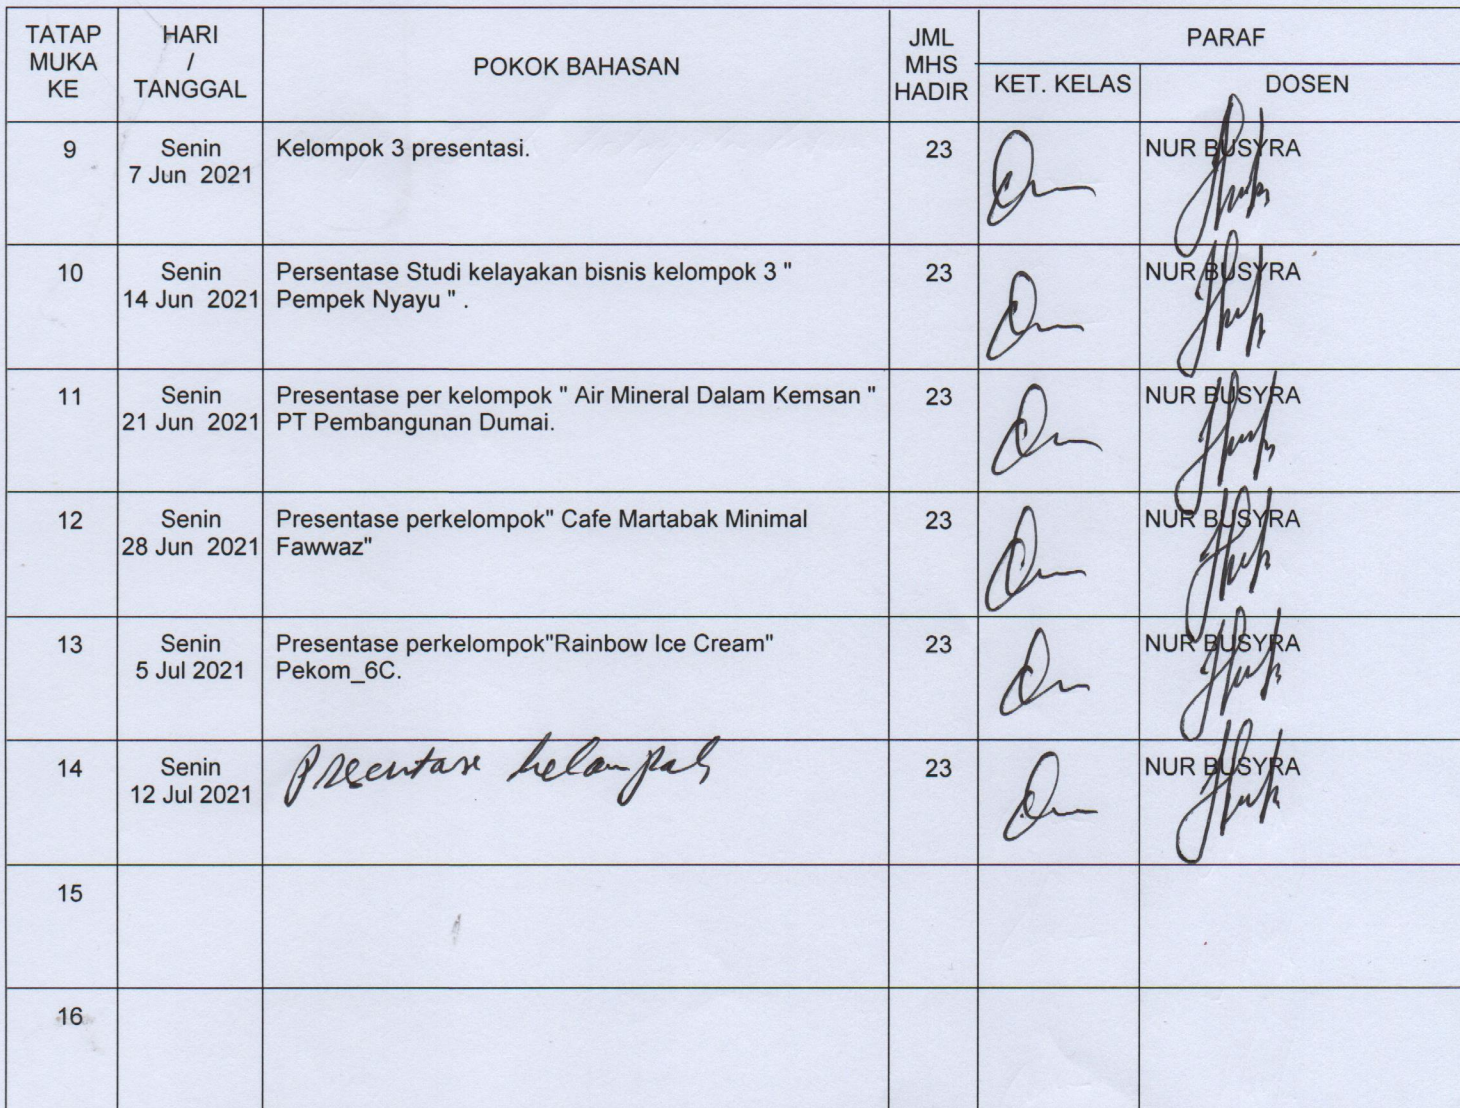 TATAP MUKA KE
HARI / TANGGAL
POKOK BAHASAN
JML MHS HADIR
PARAF
KET. KELAS
DOSEN
9
Senin
7 Jun 2021
Kelompok 3 presentasi.
23
NUR BUSYRA
10
Senin
14 Jun 2021
Persentase Studi kelayakan bisnis kelompok 3 "
Pempek Nyayu " .
23
NUR BUSYRA
11
Senin
21 Jun 2021
Presentase per kelompok " Air Mineral Dalam Kemsan "
PT Pembangunan Dumai.
23
NUR BUSYRA
12
Senin
28 Jun 2021
Presentase perkelompok" Cafe Martabak Minimal
Fawwaz"
23
NUR BUSYRA
13
Senin
5 Jul 2021
Presentase perkelompok"Rainbow Ice Cream"
Pekom_6C.
23
NUR BUSYRA
14
Senin
12 Jul 2021
Presentase kelompok
23
NUR BUSYRA
15
16